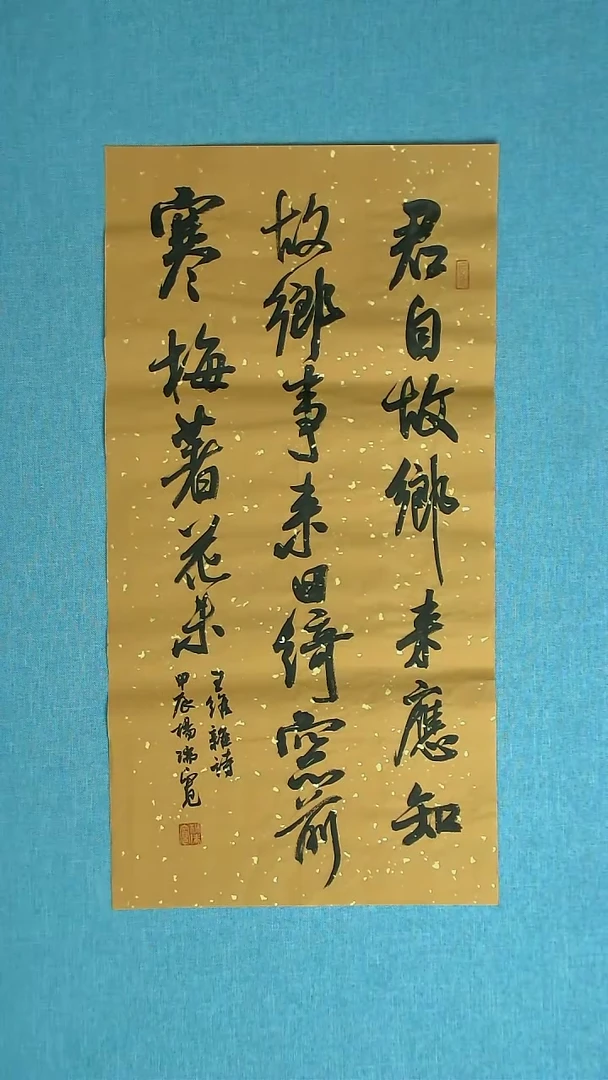 君自故鄉來應知
故鄉事來日綺窓前
寒梅著花未
王維雜詩
甲辰楊瑞寬